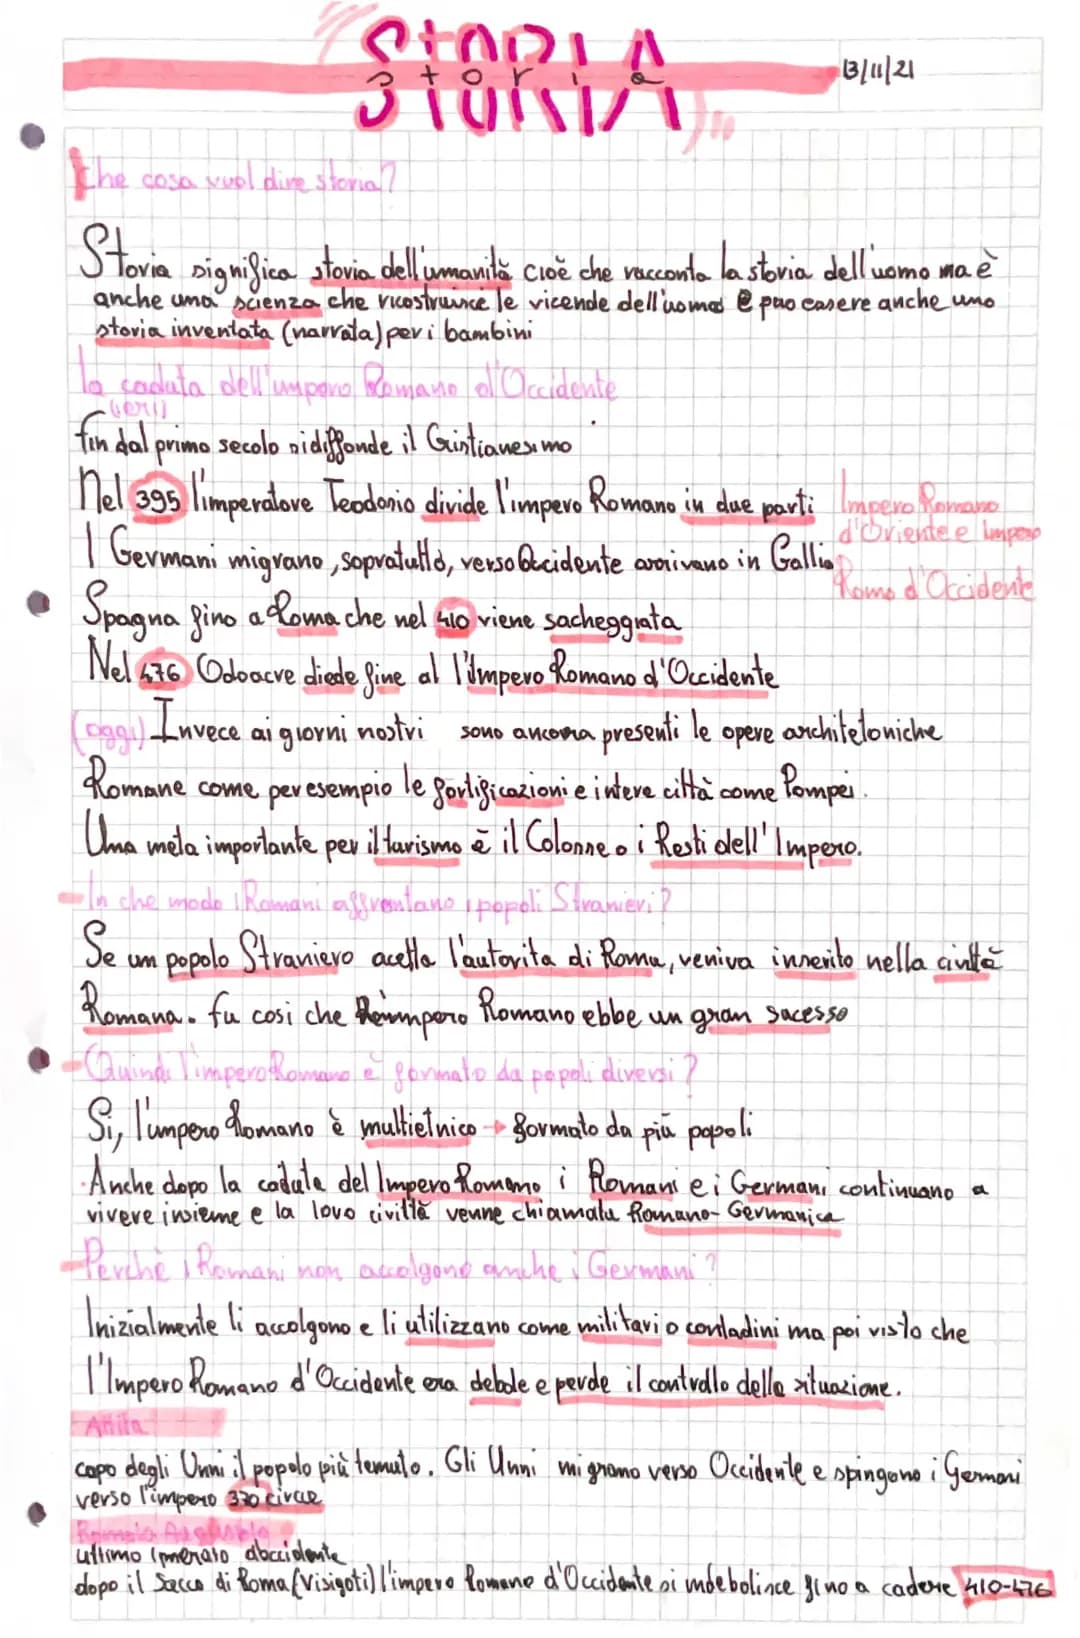 STORIA
storia
13/11/21
Che cosa vuol dire storia?
Storia significa storia dell'umanità cioè che racconta la storia dell'uomo ma è
anche una scienza che ricostruisce le vicende dell'uomo e può essere anche una
storia inventata (narrata) per i bambini
la caduta dell'impero Romano d'Occidente
(ieri)
fin dal primo secolo si diffonde il Cristianesimo
Nel 395 l'imperatore Teodosio divide l'impero Romano in due parti Impero Romano
d'Oriente e Impero
I Germani migrano, sopratutto, verso Occidente arrivano in Gallia
Romo d'Occidente
Spagna fino a Roma che nel 410 viene sacheggiata
Nel 476 Odoacre diede fine al l'Impero Romano d'Occidente
(oggi) Invece ai giorni nostri sono ancora presenti le opere architetoniche
Romane come per esempio le fortificazioni e intere città come Pompei.
Una meta importante per il turismo è il Colonne o i Resti dell'Impero.
- In che modo i Romani affrontano i popoli Stranieri?
Se un popolo Straniero acetta l'autorita di Roma, veniva inserito nella civiltà
Romana. fu cosi che impero Romano ebbe un gran sucesso
- Quindi l'impero Romano è formato da popoli diversi?
Si, l'impero Romano è multietnico → formato da più popoli
· Anche dopo la caduta del Impero Romano i Romani e i Germani continuano a
vivere insieme e la loro civiltà venne chiamata Romano-Germanica
- Perchè i Romani non accolgono anche i Germani?
Inizialmente li accolgono e li utilizzano come militari o contadini ma poi visto che
l'Impero Romano d'Occidente era debole e perde il controllo della situazione.
capo degli Unni il popolo più temuto. Gli Unni migrano verso Occidente e spingono i Germani
verso l'impero 370 circa
ultimo
dopo il Sacco di Roma (Visigoti) l'impero Romano d'Occidente si indebolisce fino a cadere 410-476